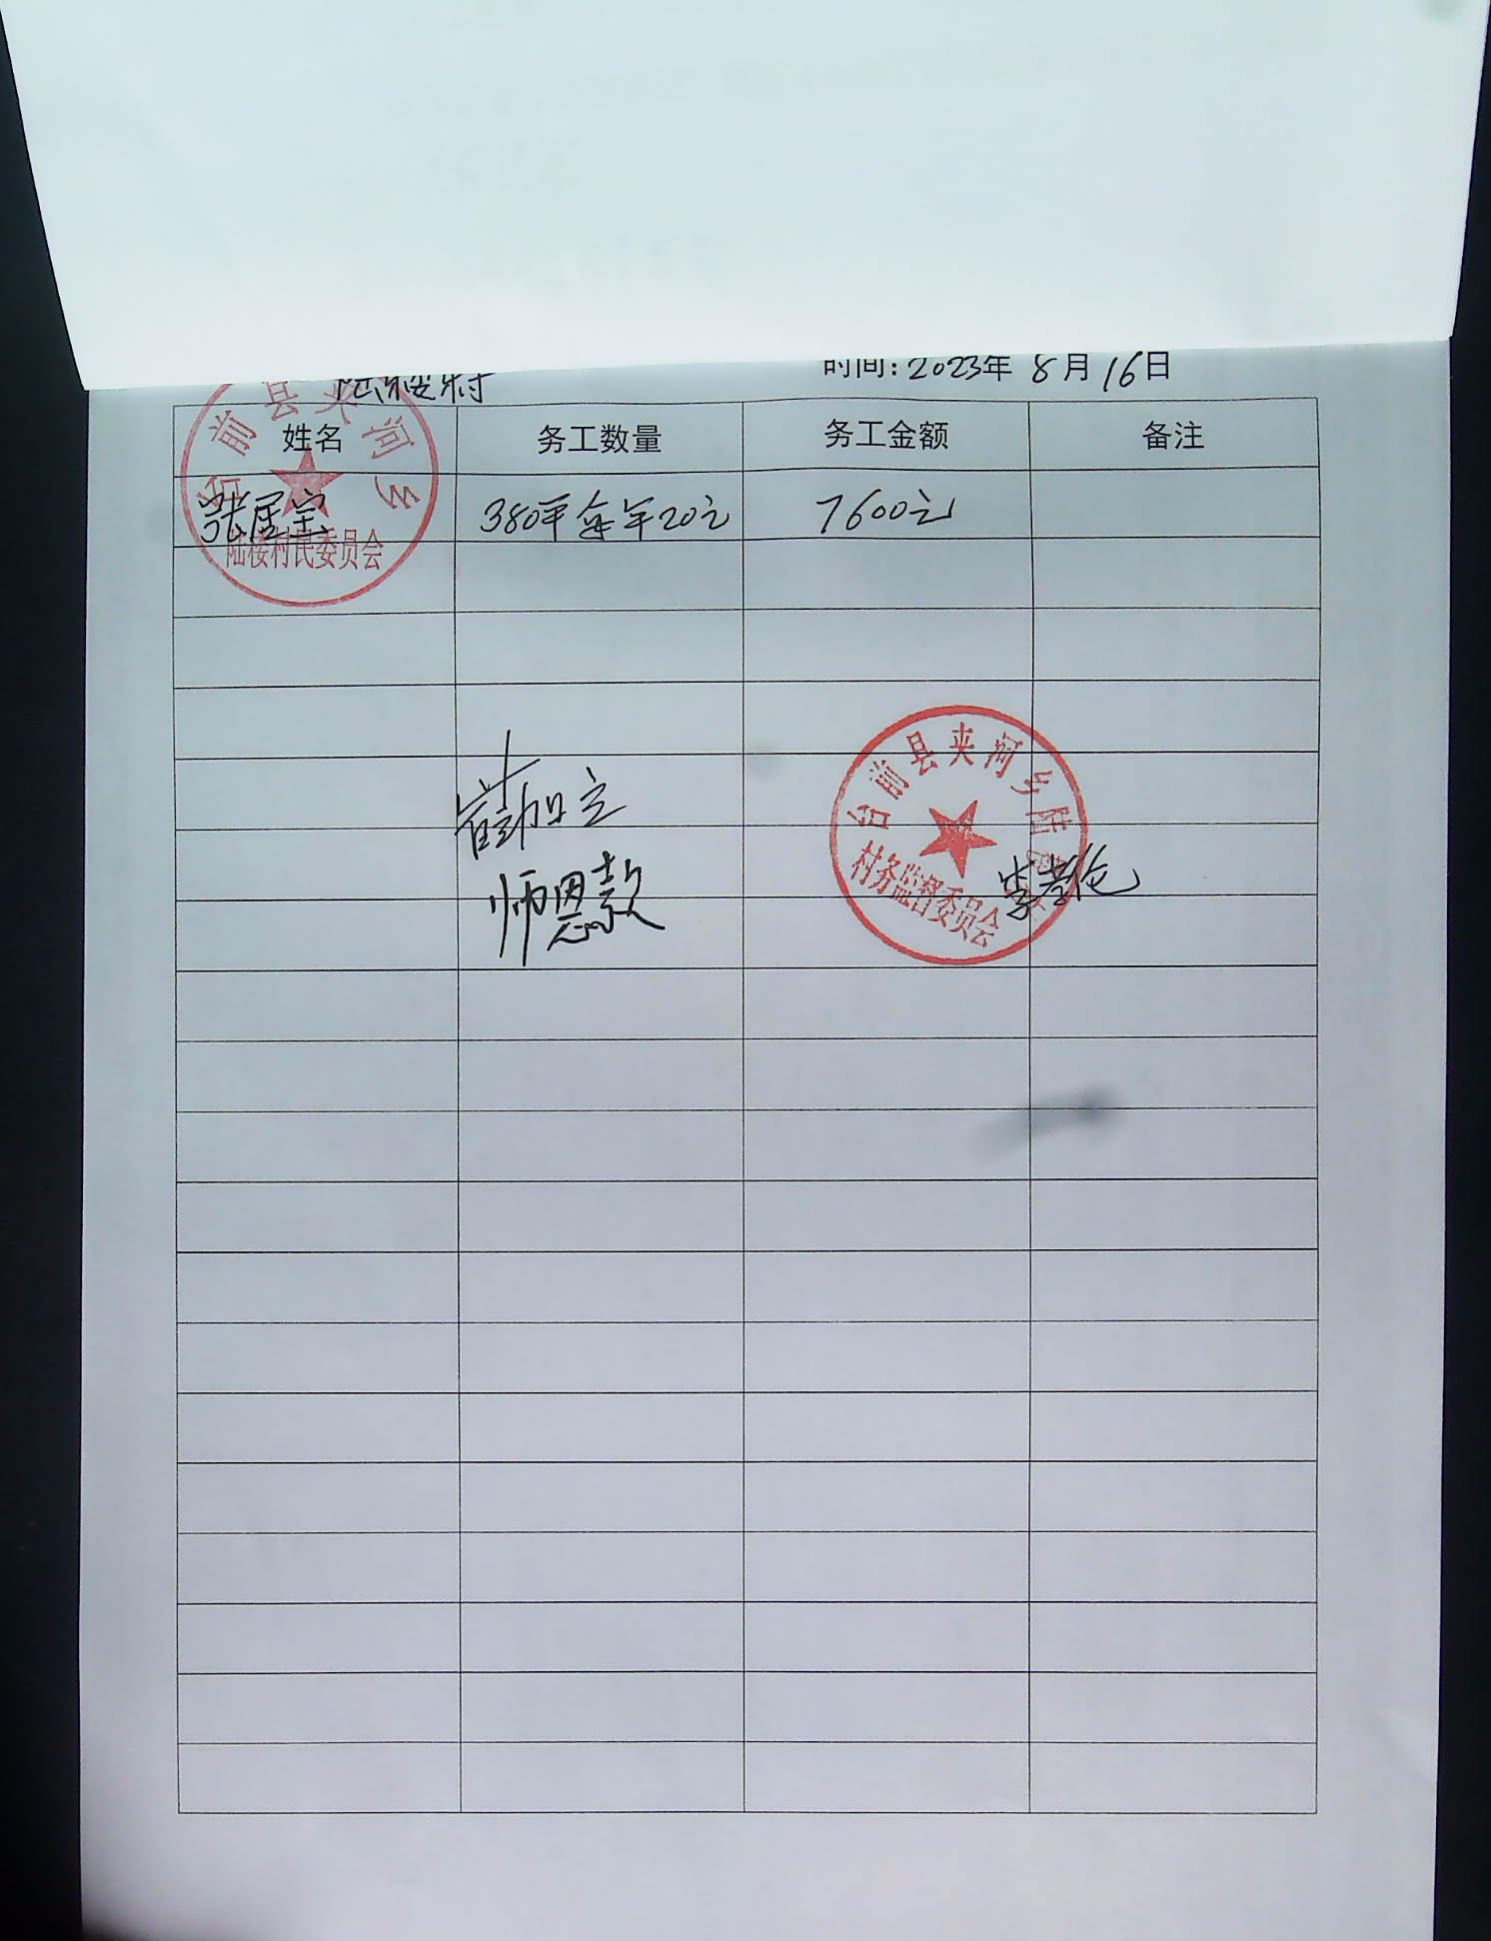 陆楼村 时间：2023年 8月16日
姓名 务工数量 务工金额 备注
380平 每平20元 7600元
台前县夹河乡
陆楼村民委员会
台前县夹河乡陆楼
村务监督委员会
师恩款